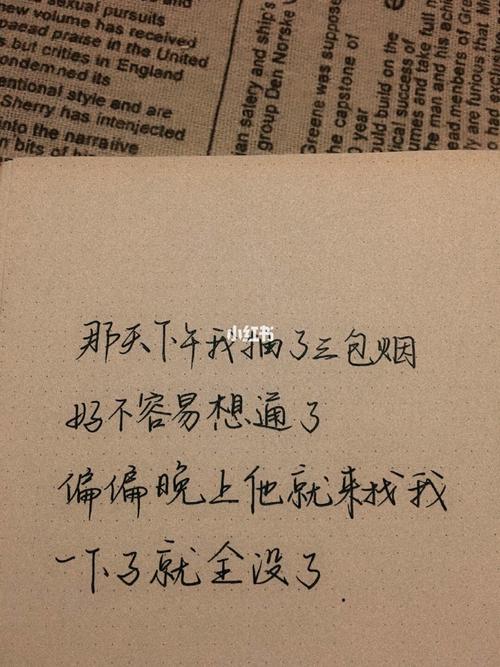 sexual pursuits
new volume has received
paead praise in the United
s.but crities in England
ondemned its
entional style and are
Sherry has intenjected
into the narraiive
n bits of
ian salery and ship's
group Den Norske
Greene was suppose
the capstone of
year
ould build on the
ical success of
umes and take full
the man and his achi
ead menbers of Gre
y are furious that
o had
那天下午我抽了三包烟
小红书
好不容易想通了
偏偏晚上他就来找我
一下子就全没了